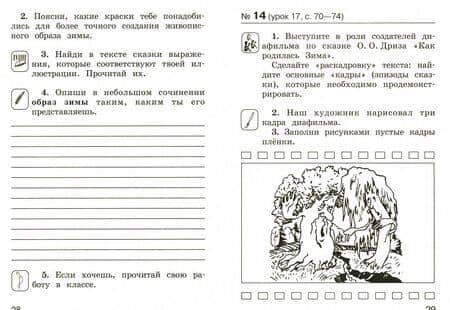 2. Поясни, какие краски тебе понадоби-
лись для более точного создания живопис-
ного образа зимы.
3. Найди в тексте сказки выраже-
ния, которые соответствуют твоей ил-
люстрации. Прочитай их.
4. Опиши в небольшом сочинении
образ зимы таким, каким ты его
представляешь.
5. Если хочешь, прочитай свою ра-
боту в классе.
28
№ 14 (урок 17, с. 70—74)
1. Выступите в роли создателей ди-
афильма по сказке О. О. Дриза «Как
родилась Зима».
Сделайте «раскадровку» текста: най-
дите основные «кадры» (эпизоды сказ-
ки), которые необходимо продемонст-
рировать.
2. Наш художник нарисовал три
кадра диафильма.
3. Заполни рисунками пустые кадры
плёнки.
29